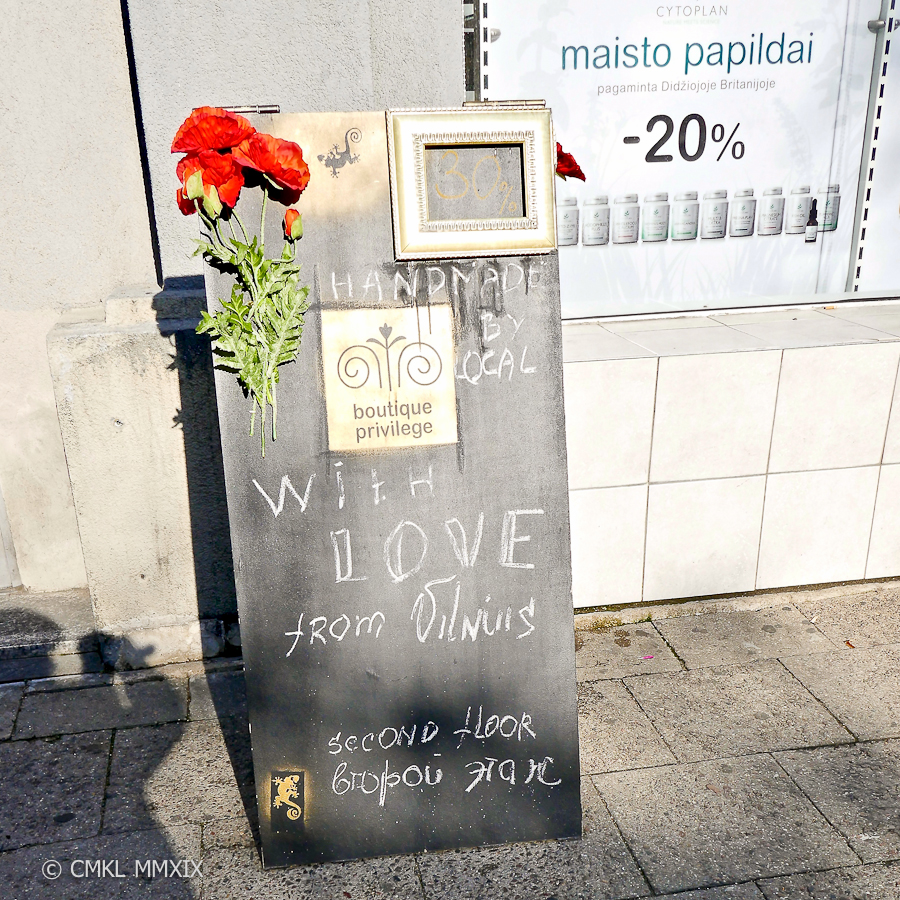 CYTOPLAN
maisto papildai
pagaminta Didžiojoje Britanijoje
-20%
30%
HANDMADE
BY
LOCAL
boutique
privilege
With
LOVE
from Vilnius
second floor
второй этаж
© CMKL MMXIX